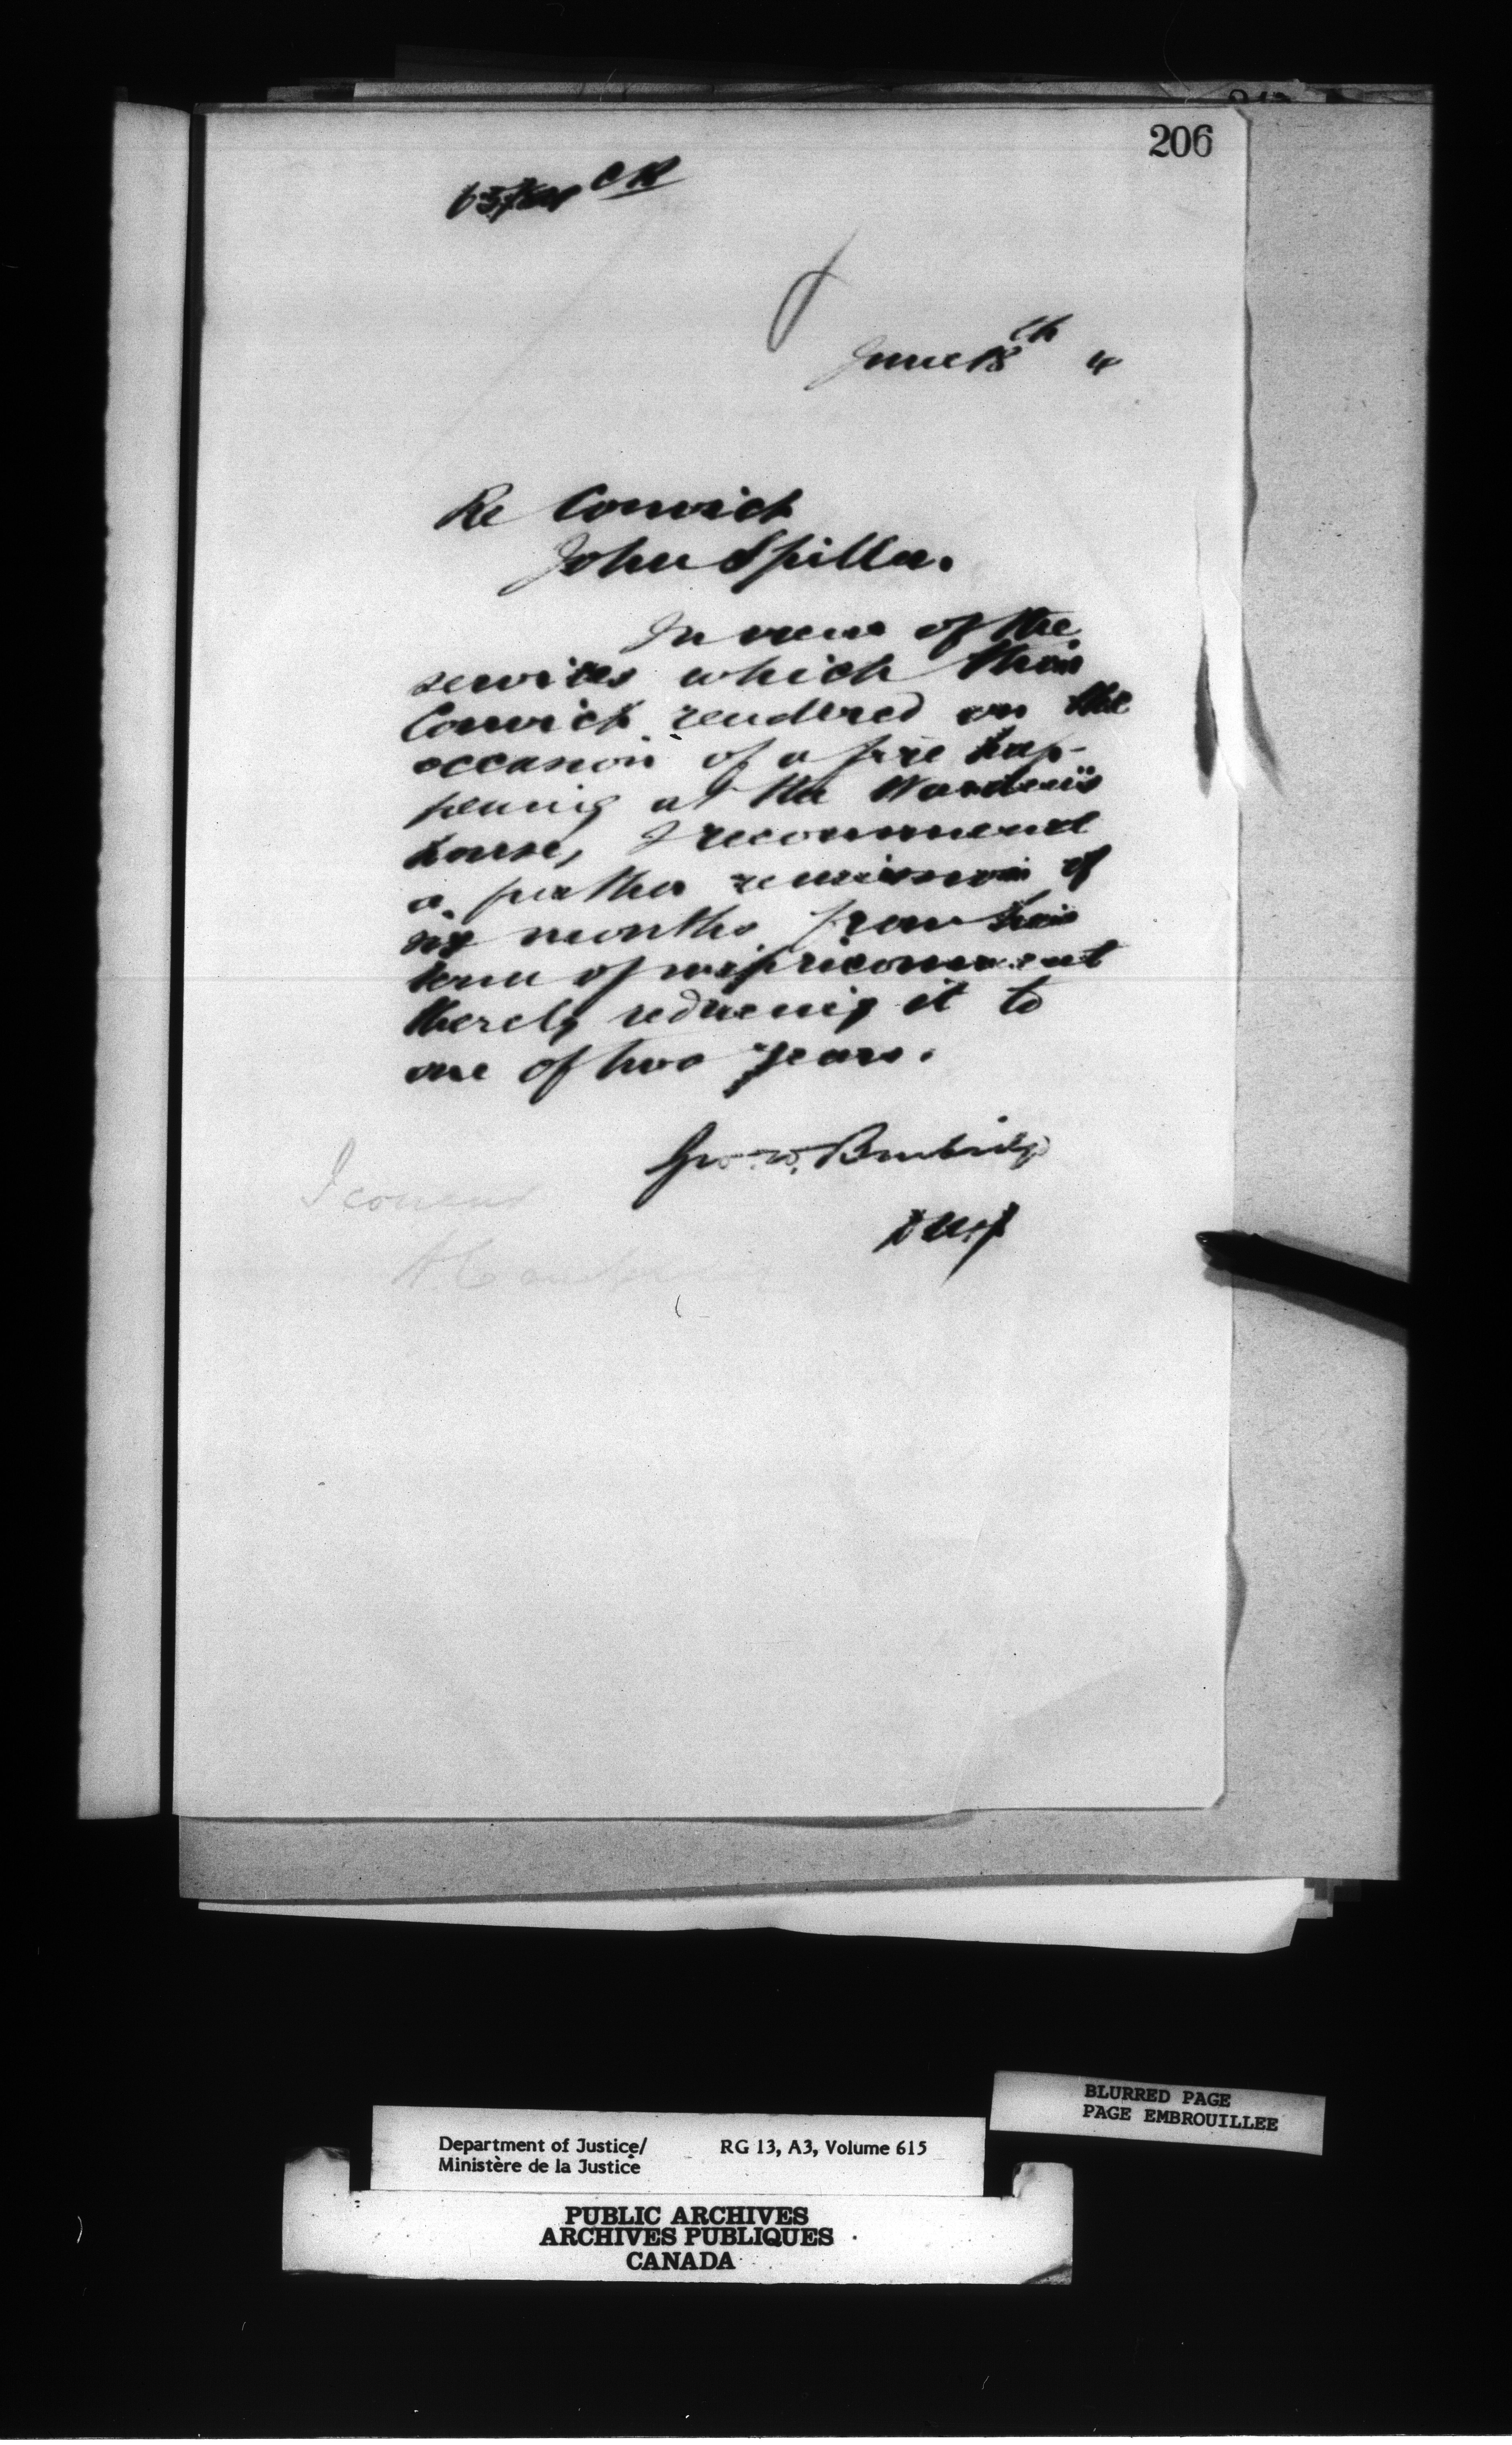 206
CR
June 18th 4
Re Convict
John Spiller.
In view of the
services which this
Convict rendered on the
occasion of a fire hap-
pening at the Warden's
house, I recommend
a further remission of
six months from his
term of imprisonment
thereby reducing it to
one of two years.
Geo. W. Burbidge
I concur
A. Campbell
BLURRED PAGE
PAGE EMBROUILLEE
Department of Justice/ RG 13, A3, Volume 615
Ministère de la Justice
PUBLIC ARCHIVES
ARCHIVES PUBLIQUES
CANADA